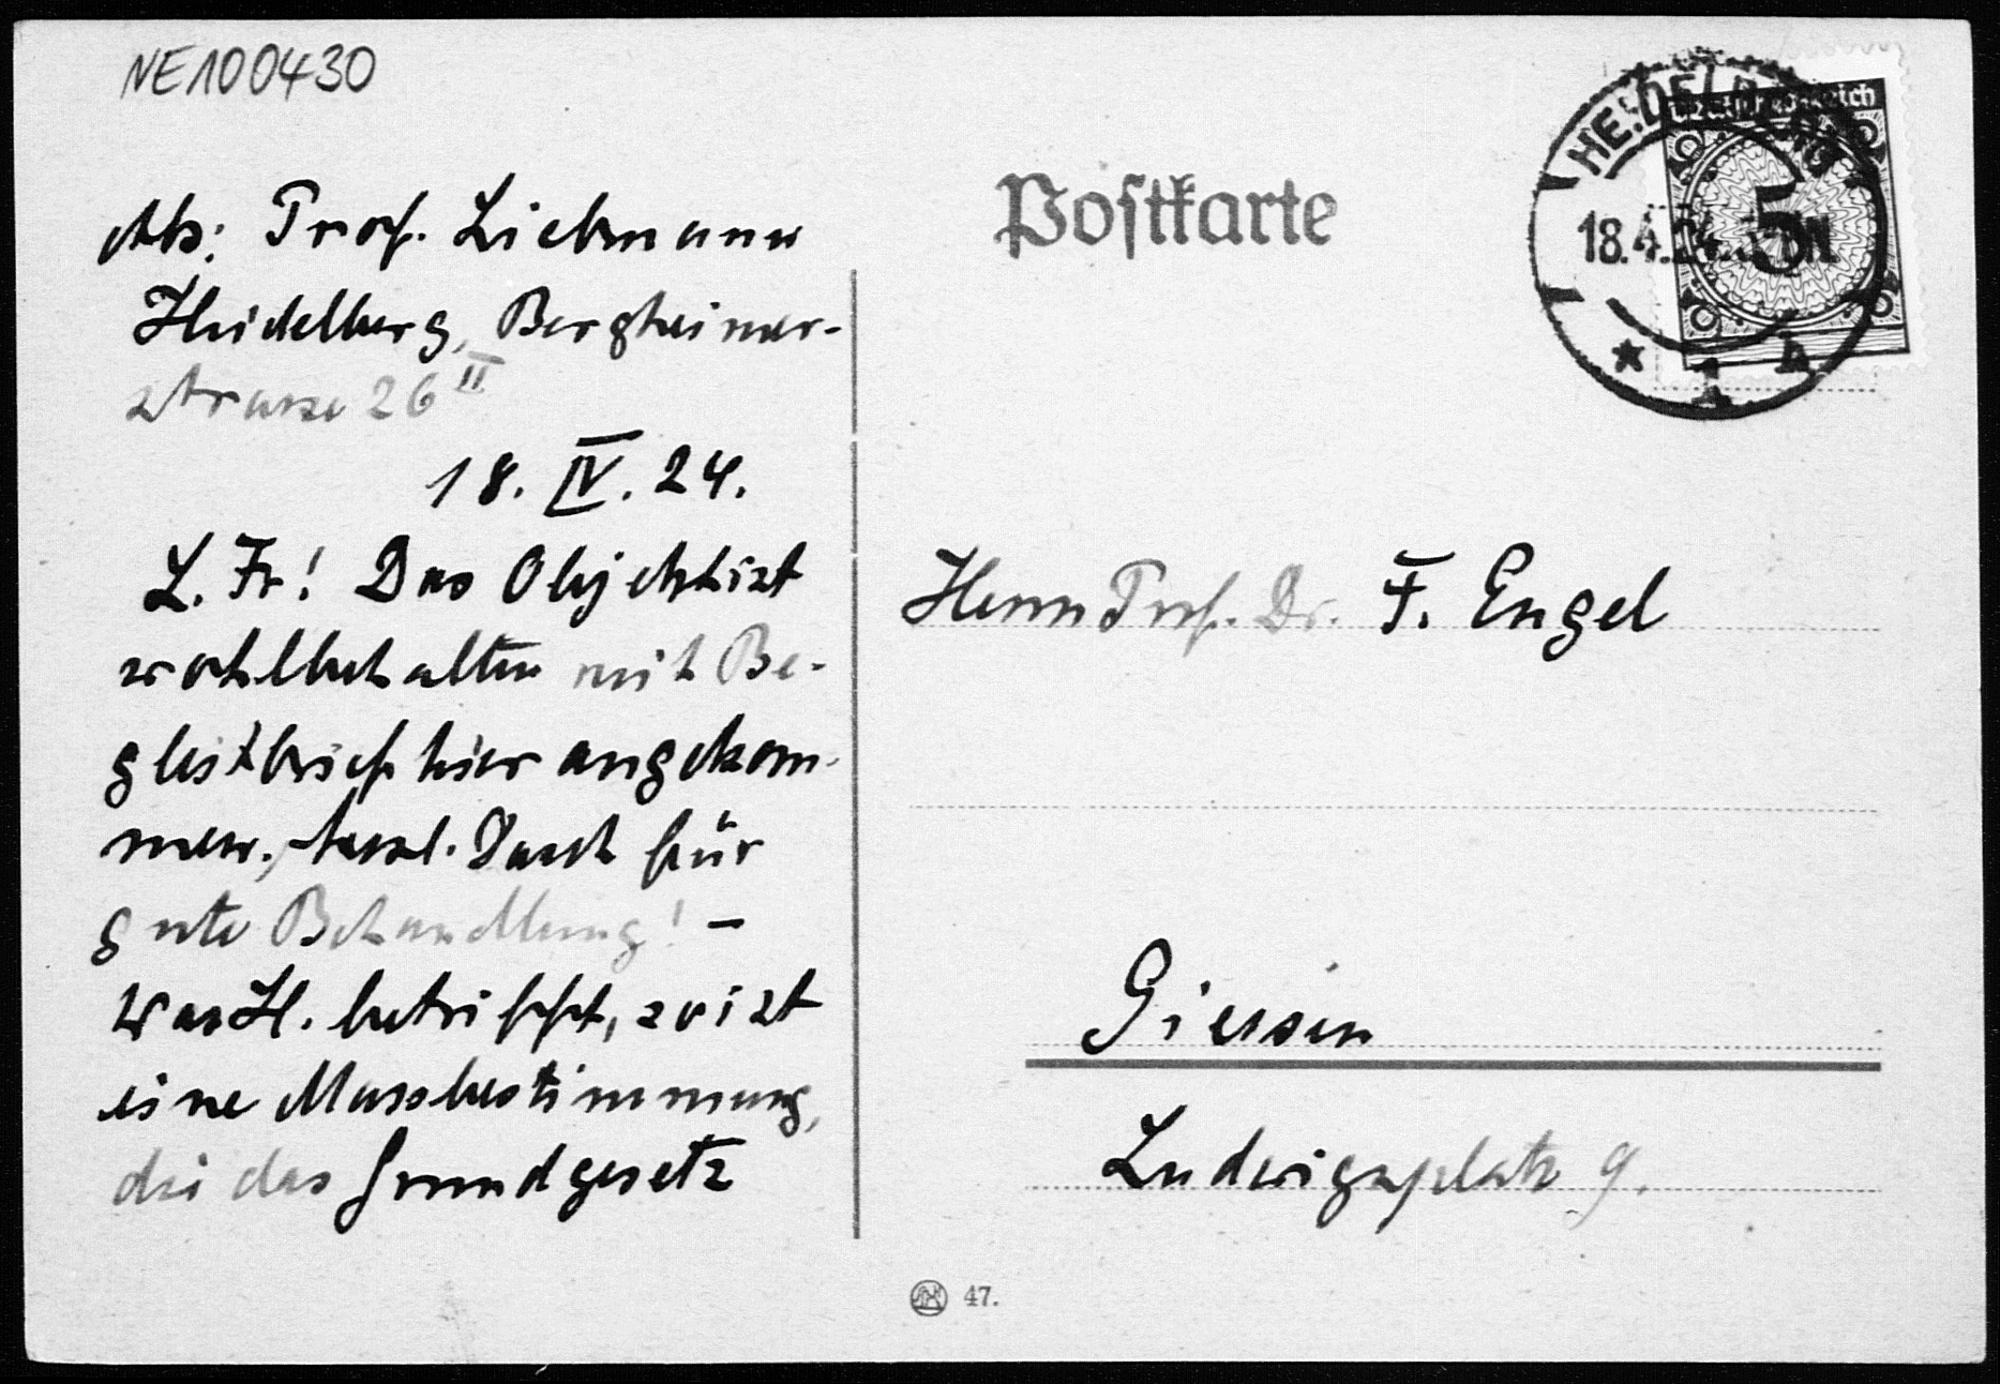 NE100430
Abs: Prof. Liebmann
Heidelberg, Bergheimer-
strasse 26 II
18. IV. 24.
L. Fr! Das Objekt ist
wohlbehalten mit Be-
gleitbrief hier angekom-
men, herzl. Dank für
gute Behandlung! –
Was H. betrifft, so ist
eine Massbestimmung,
die das Grundgesetz
Postkarte
Deutsches Reich
5
HEIDELBERG
18.4.24.
* 1 A
Herrn Prof. Dr. F. Engel
Giessen
Ludwigsplatz 9.
47.